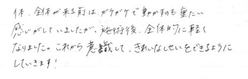 体、全体が来る前は ガタガタで動かすのも重たい
感じがしていましたが、施術後、全体的に軽く
なりました。これから意識して、きれいなしせいをできるように
していきます！